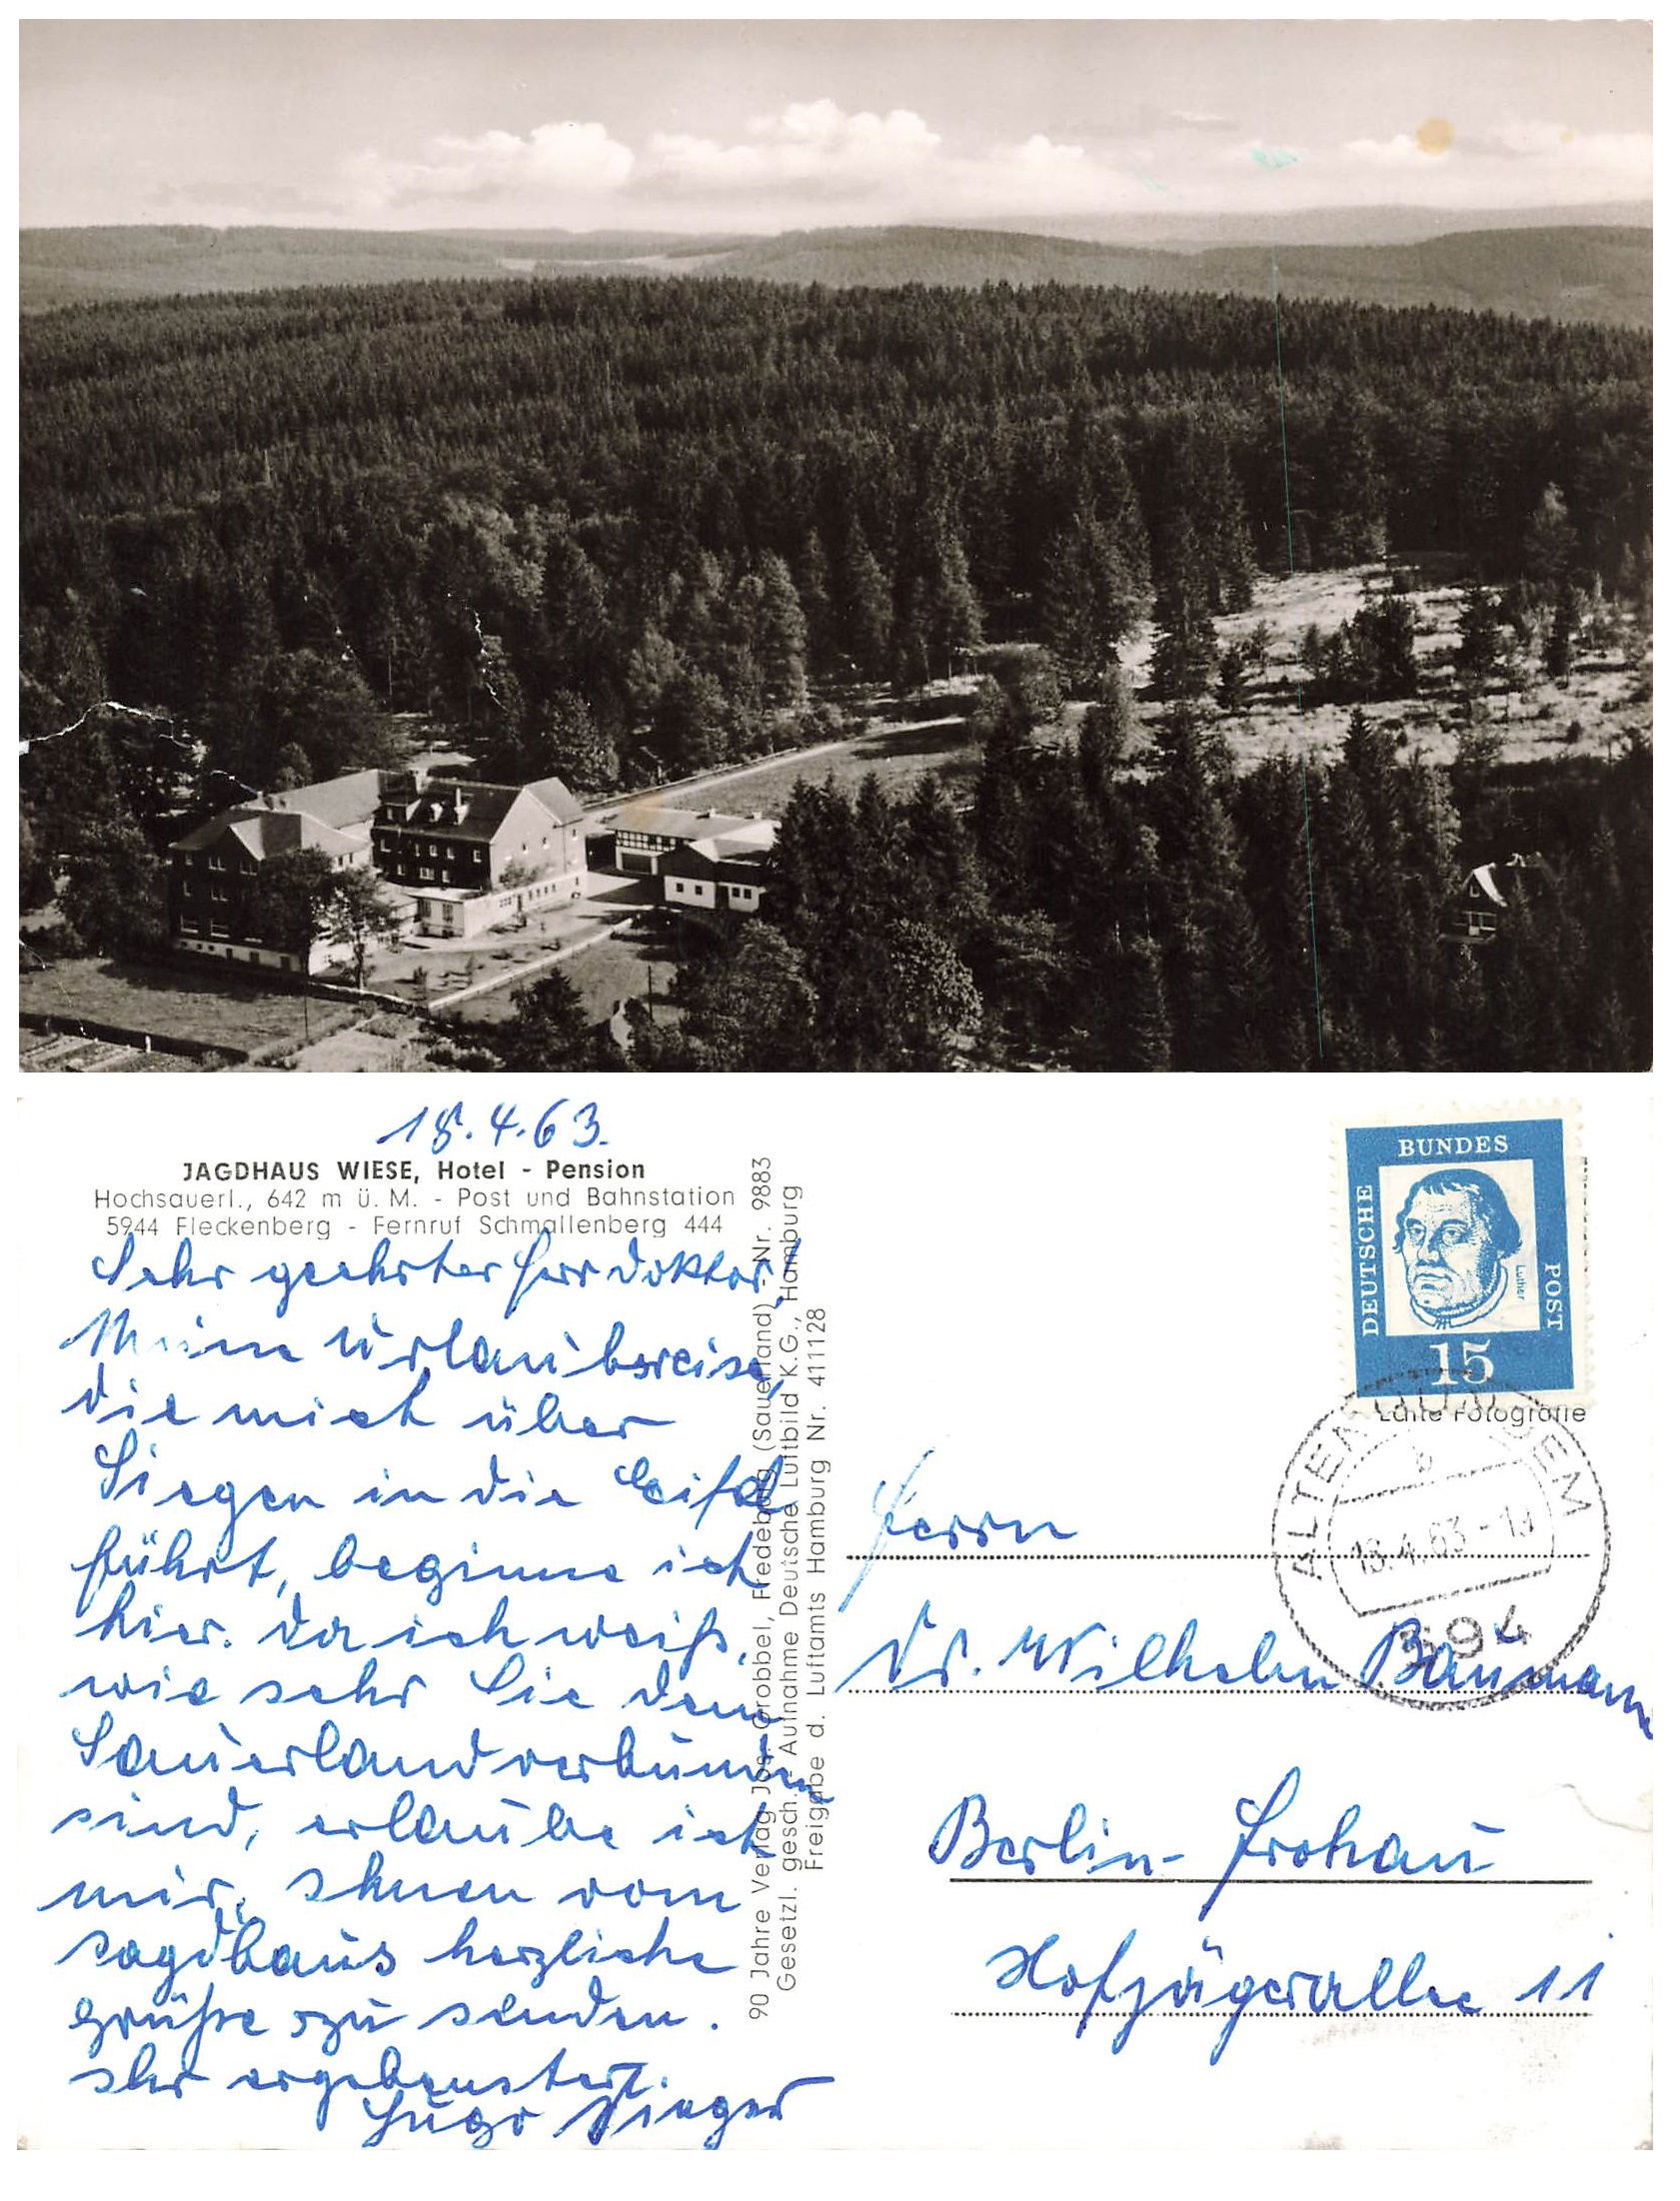 18.4.63.
JAGDHAUS WIESE, Hotel - Pension
Hochsauerl., 642 m ü. M. - Post und Bahnstation
5944 Fleckenberg - Fernruf Schmallenberg 444
Sehr geehrter Herr Doktor,
Meine Urlaubsreise,
die mich über
Siegen in die Eifel
führt, beginne ich
hier. Da ich weiß,
wie sehr Sie dem
Sauerland verbunden
sind, erlaube ich
mir, Ihnen vom
Jagdhaus herzliche
Grüße zu senden.
Ihr ergebenster
Hugo
90 Jahre Verlag Jos. Grobbel, Fredeburg (Sauerland) - Nr. 9883
Gesetzl. gesch. - Aufnahme Deutsche Luftbild K.G., Hamburg
Freigabe d. Luftamts Hamburg Nr. 411128
BUNDES
DEUTSCHE
POST
Luther
15
Echte Fotografie
b
18.4.63
594
Herrn
Dr. Wilhelm Baumann
Berlin-Frohnau
Hofjägerallee 11